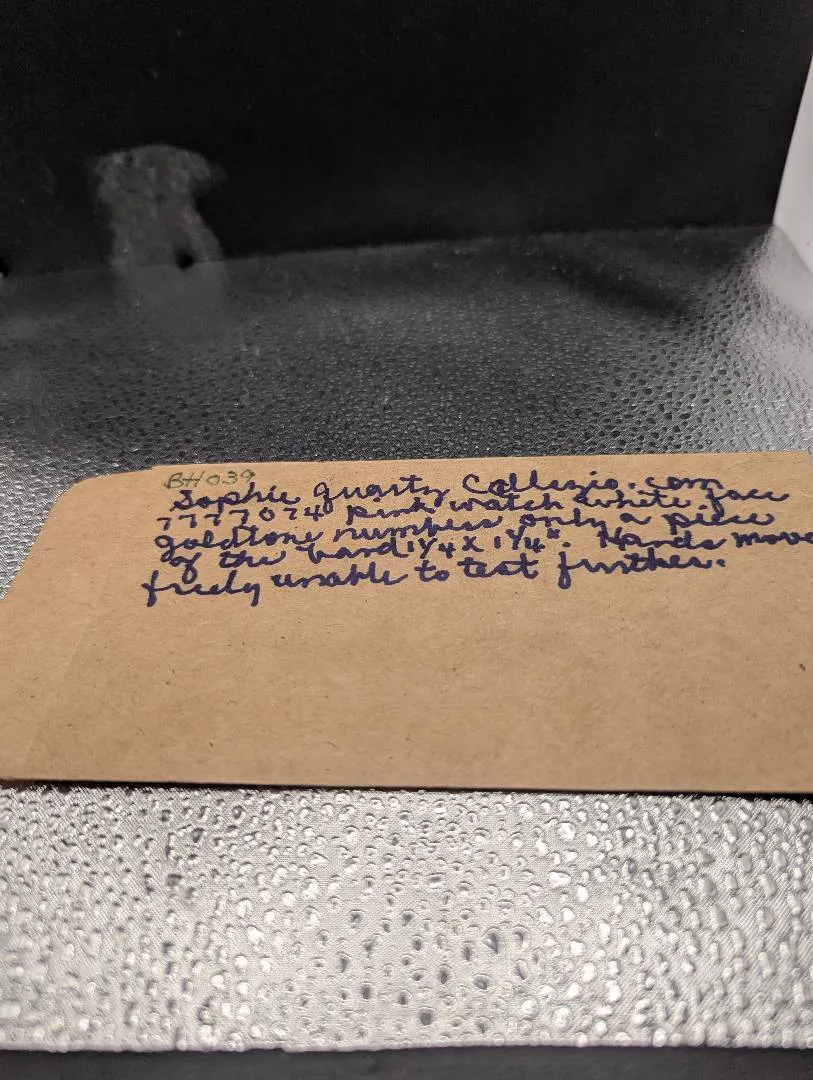 BH039
Sophie quartz Collezio.com
7777074 pink watch white face
goldtone numbers only a piece
of the band 1 1/4 x 1 1/4". Hands move
freely unable to test further.